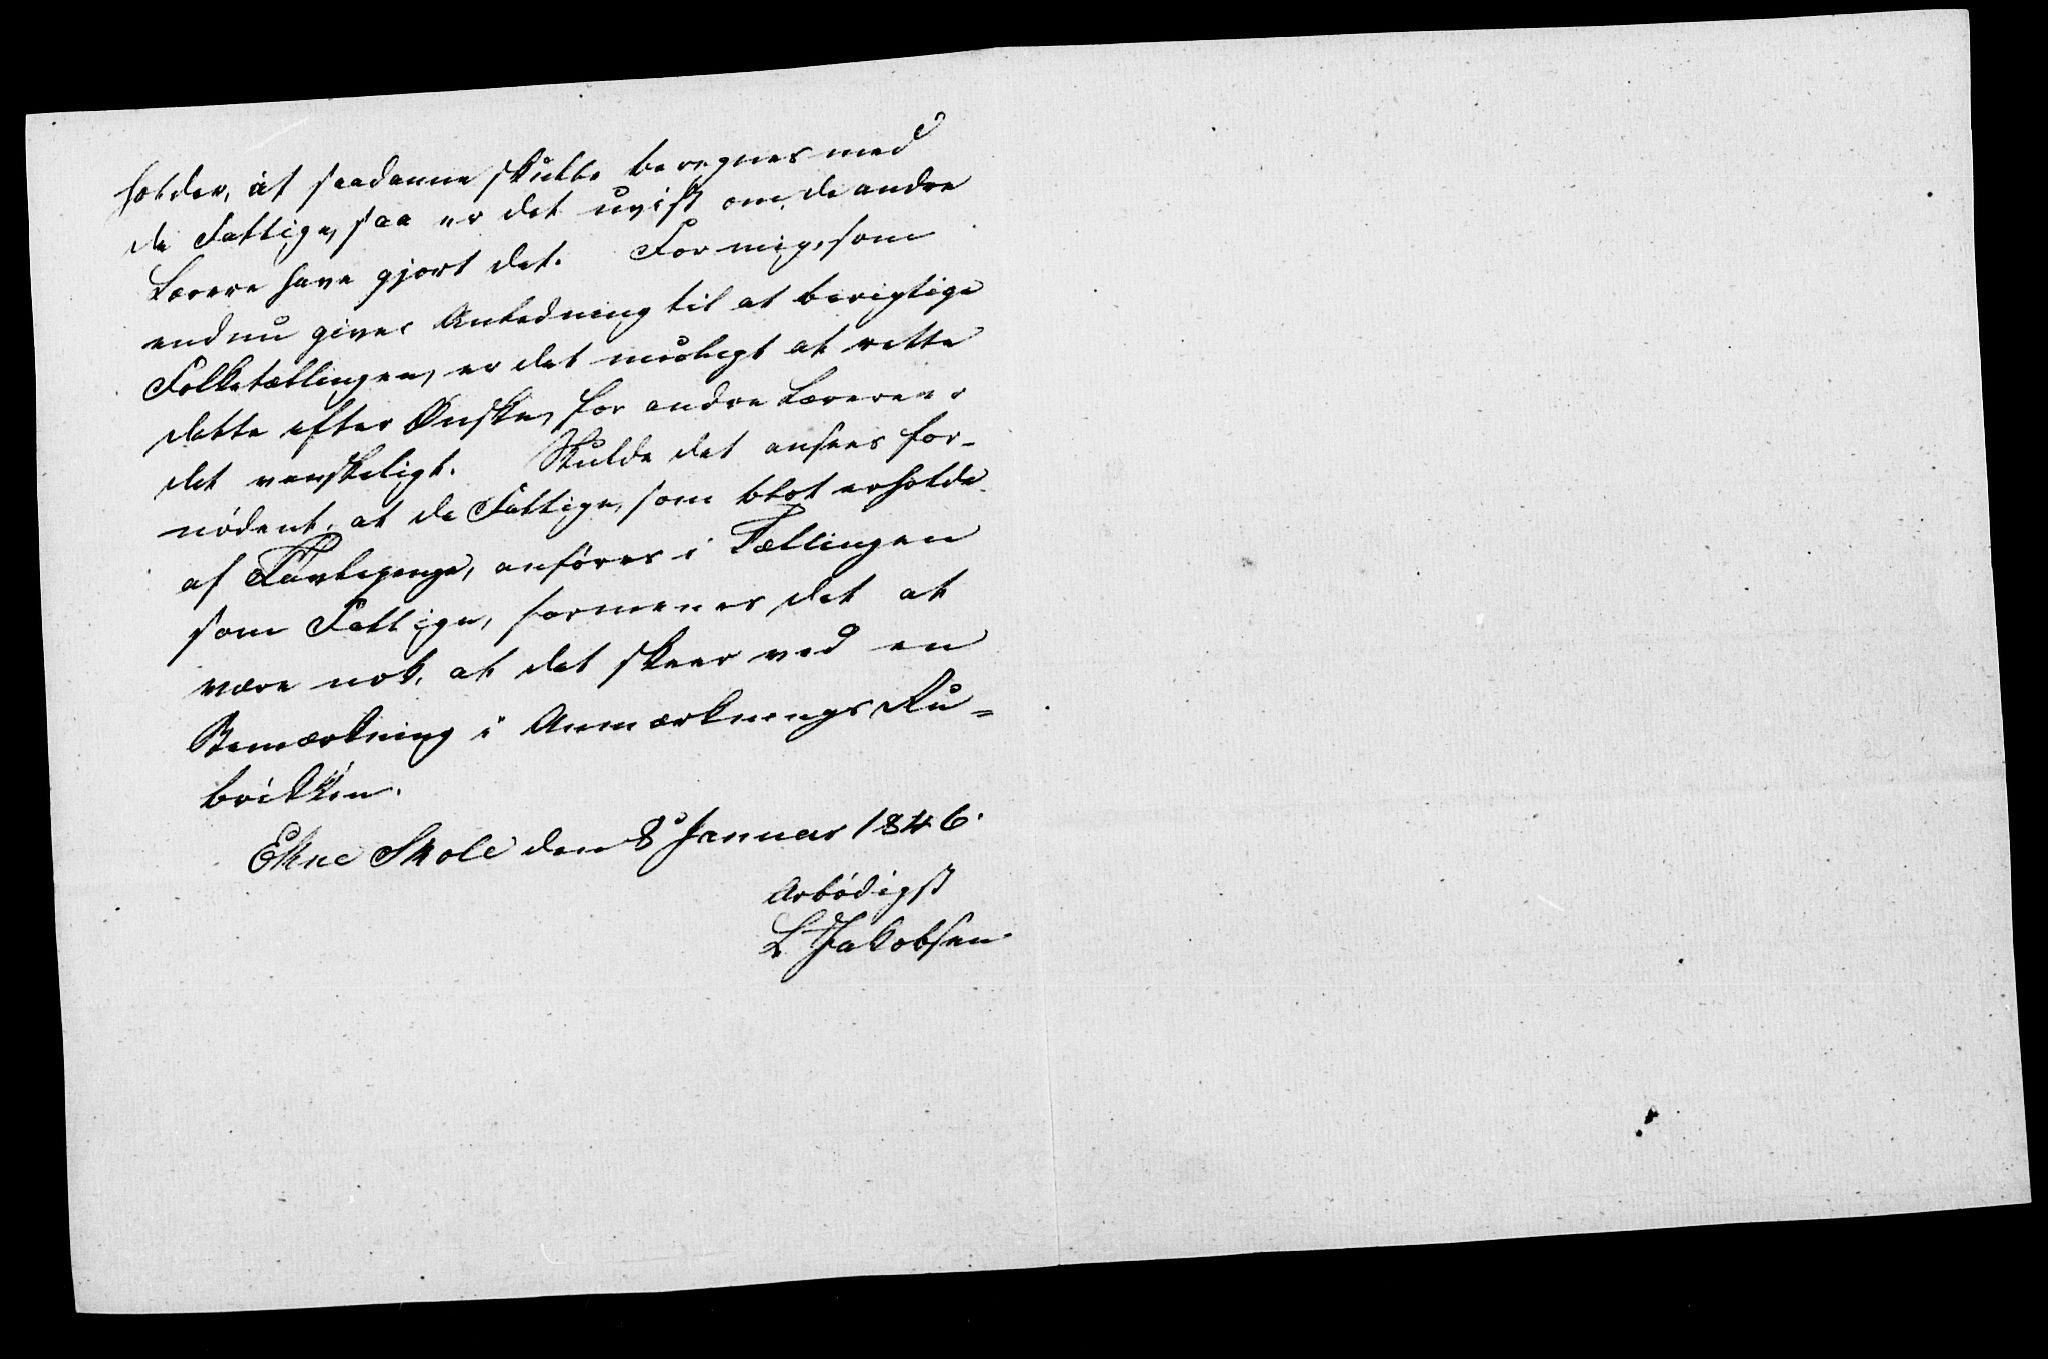 holder, at saadanne skulle beregnes med
de Fattige, saa er det uvist om de andre
Lærere have gjort det. For mig, som
endnu gives Anledning til at berigtige
Folketællingen, er det mueligt at rette
dette efter Ønske, for andre Lærere er
det vanskeligt. Skulde det ansees for-
nødent, at de Fattige, som blot erholde
af Tavlepenge, anføres i Tællingen
som Fattige, formenes det at
være nok, at det skeer ved en
Bemærkning i Anmærknings Ru=
brikken.
Ekne Skole den 8 Januar 1846.
Ærbødigst
L Jakobsen.